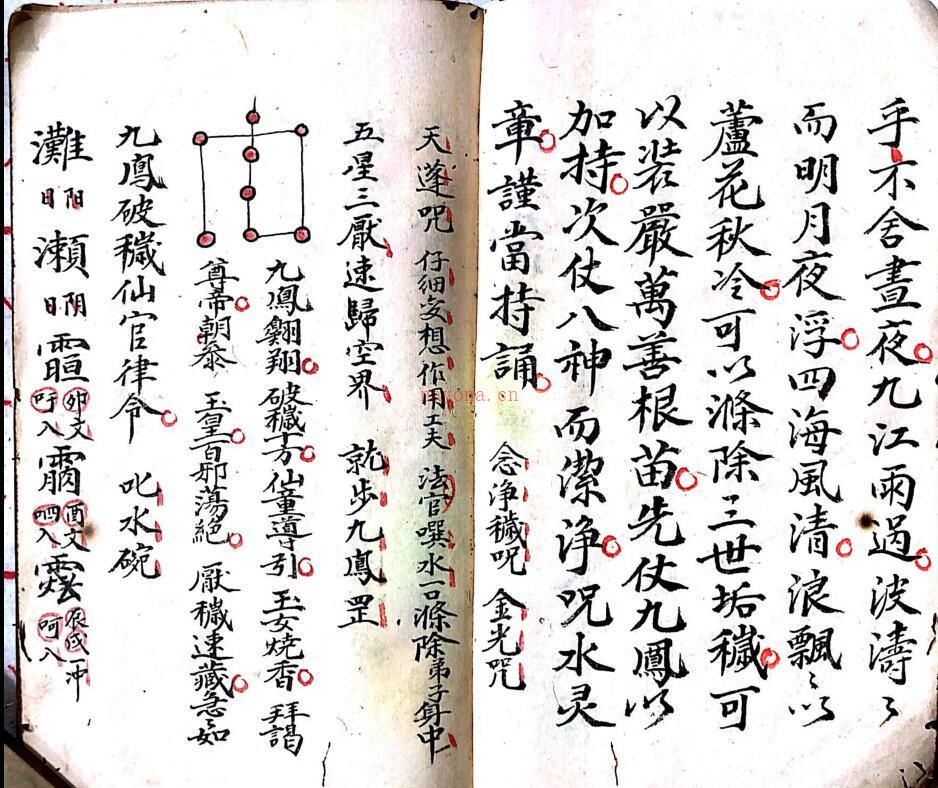 乎不舍晝夜九江雨過波濤〻
而明月夜浮四海風清浪飄〻以
蘆花秋冷可以滌除三世垢穢可
以裝嚴萬善根苗先仗九鳳以
加持次仗八神而潔净咒水灵
章謹當持誦 念净穢咒 金光咒
天蓬咒 仔細安想作用工夫 法官噀水一口滌除弟子身中
五星三厭速歸空界 就步九鳳罡
九鳳翱翔破穢十方仙童導引玉女燒香 拜謁
尊帝朝參 玉皇百邪蕩絕 厭穢速藏急〻如
九鳳破穢仙官律令 叱水碗
灘 日阳 瀨 日阴 䨔 卯文 吁入 酉文 呬入 辰戌一冲 呵入